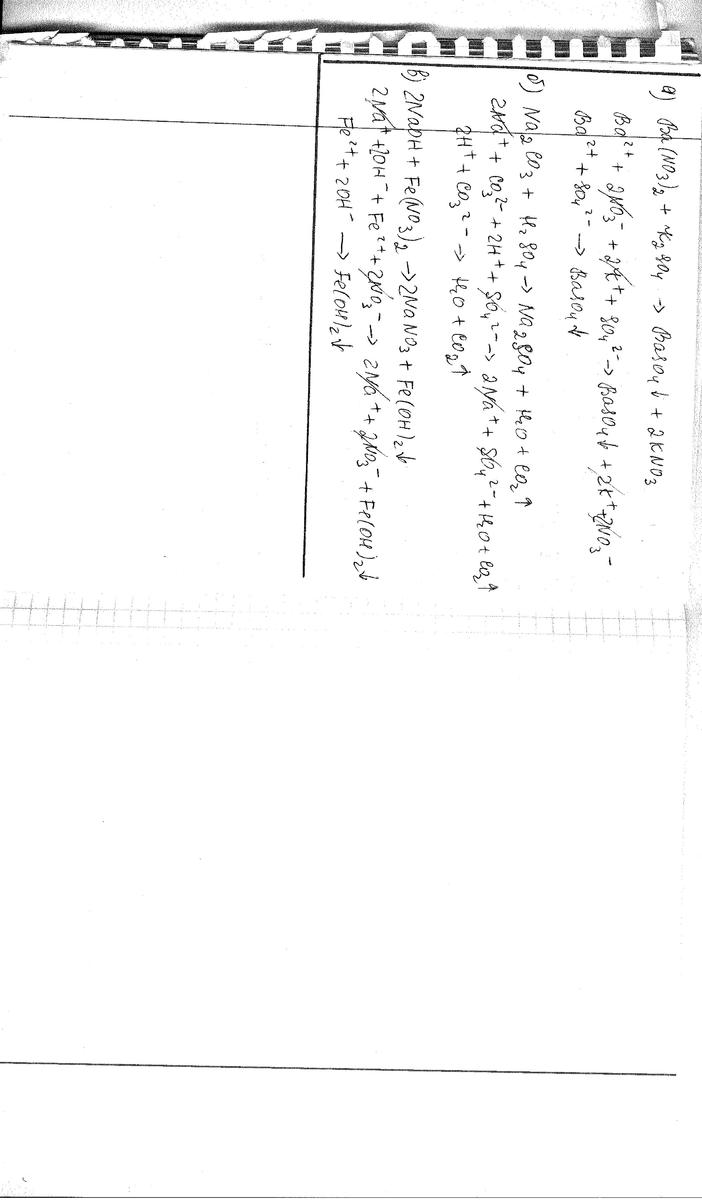 а) Ba(NO3)2 + K2SO4 → BaSO4↓ + 2KNO3
Ba²⁺ + 2NO3⁻ + 2K⁺ + SO4²⁻ → BaSO4↓ + 2K⁺ + 2NO3⁻
Ba²⁺ + SO4²⁻ → BaSO4↓
б) Na2CO3 + H2SO4 → Na2SO4 + H2O + CO2↑
2Na⁺ + CO3²⁻ + 2H⁺ + SO4²⁻ → 2Na⁺ + SO4²⁻ + H2O + CO2↑
2H⁺ + CO3²⁻ → H2O + CO2↑
в) 2NaOH + Fe(NO3)2 → 2NaNO3 + Fe(OH)2↓
2Na⁺ + 2OH⁻ + Fe²⁺ + 2NO3⁻ → 2Na⁺ + 2NO3⁻ + Fe(OH)2↓
Fe²⁺ + 2OH⁻ → Fe(OH)2↓